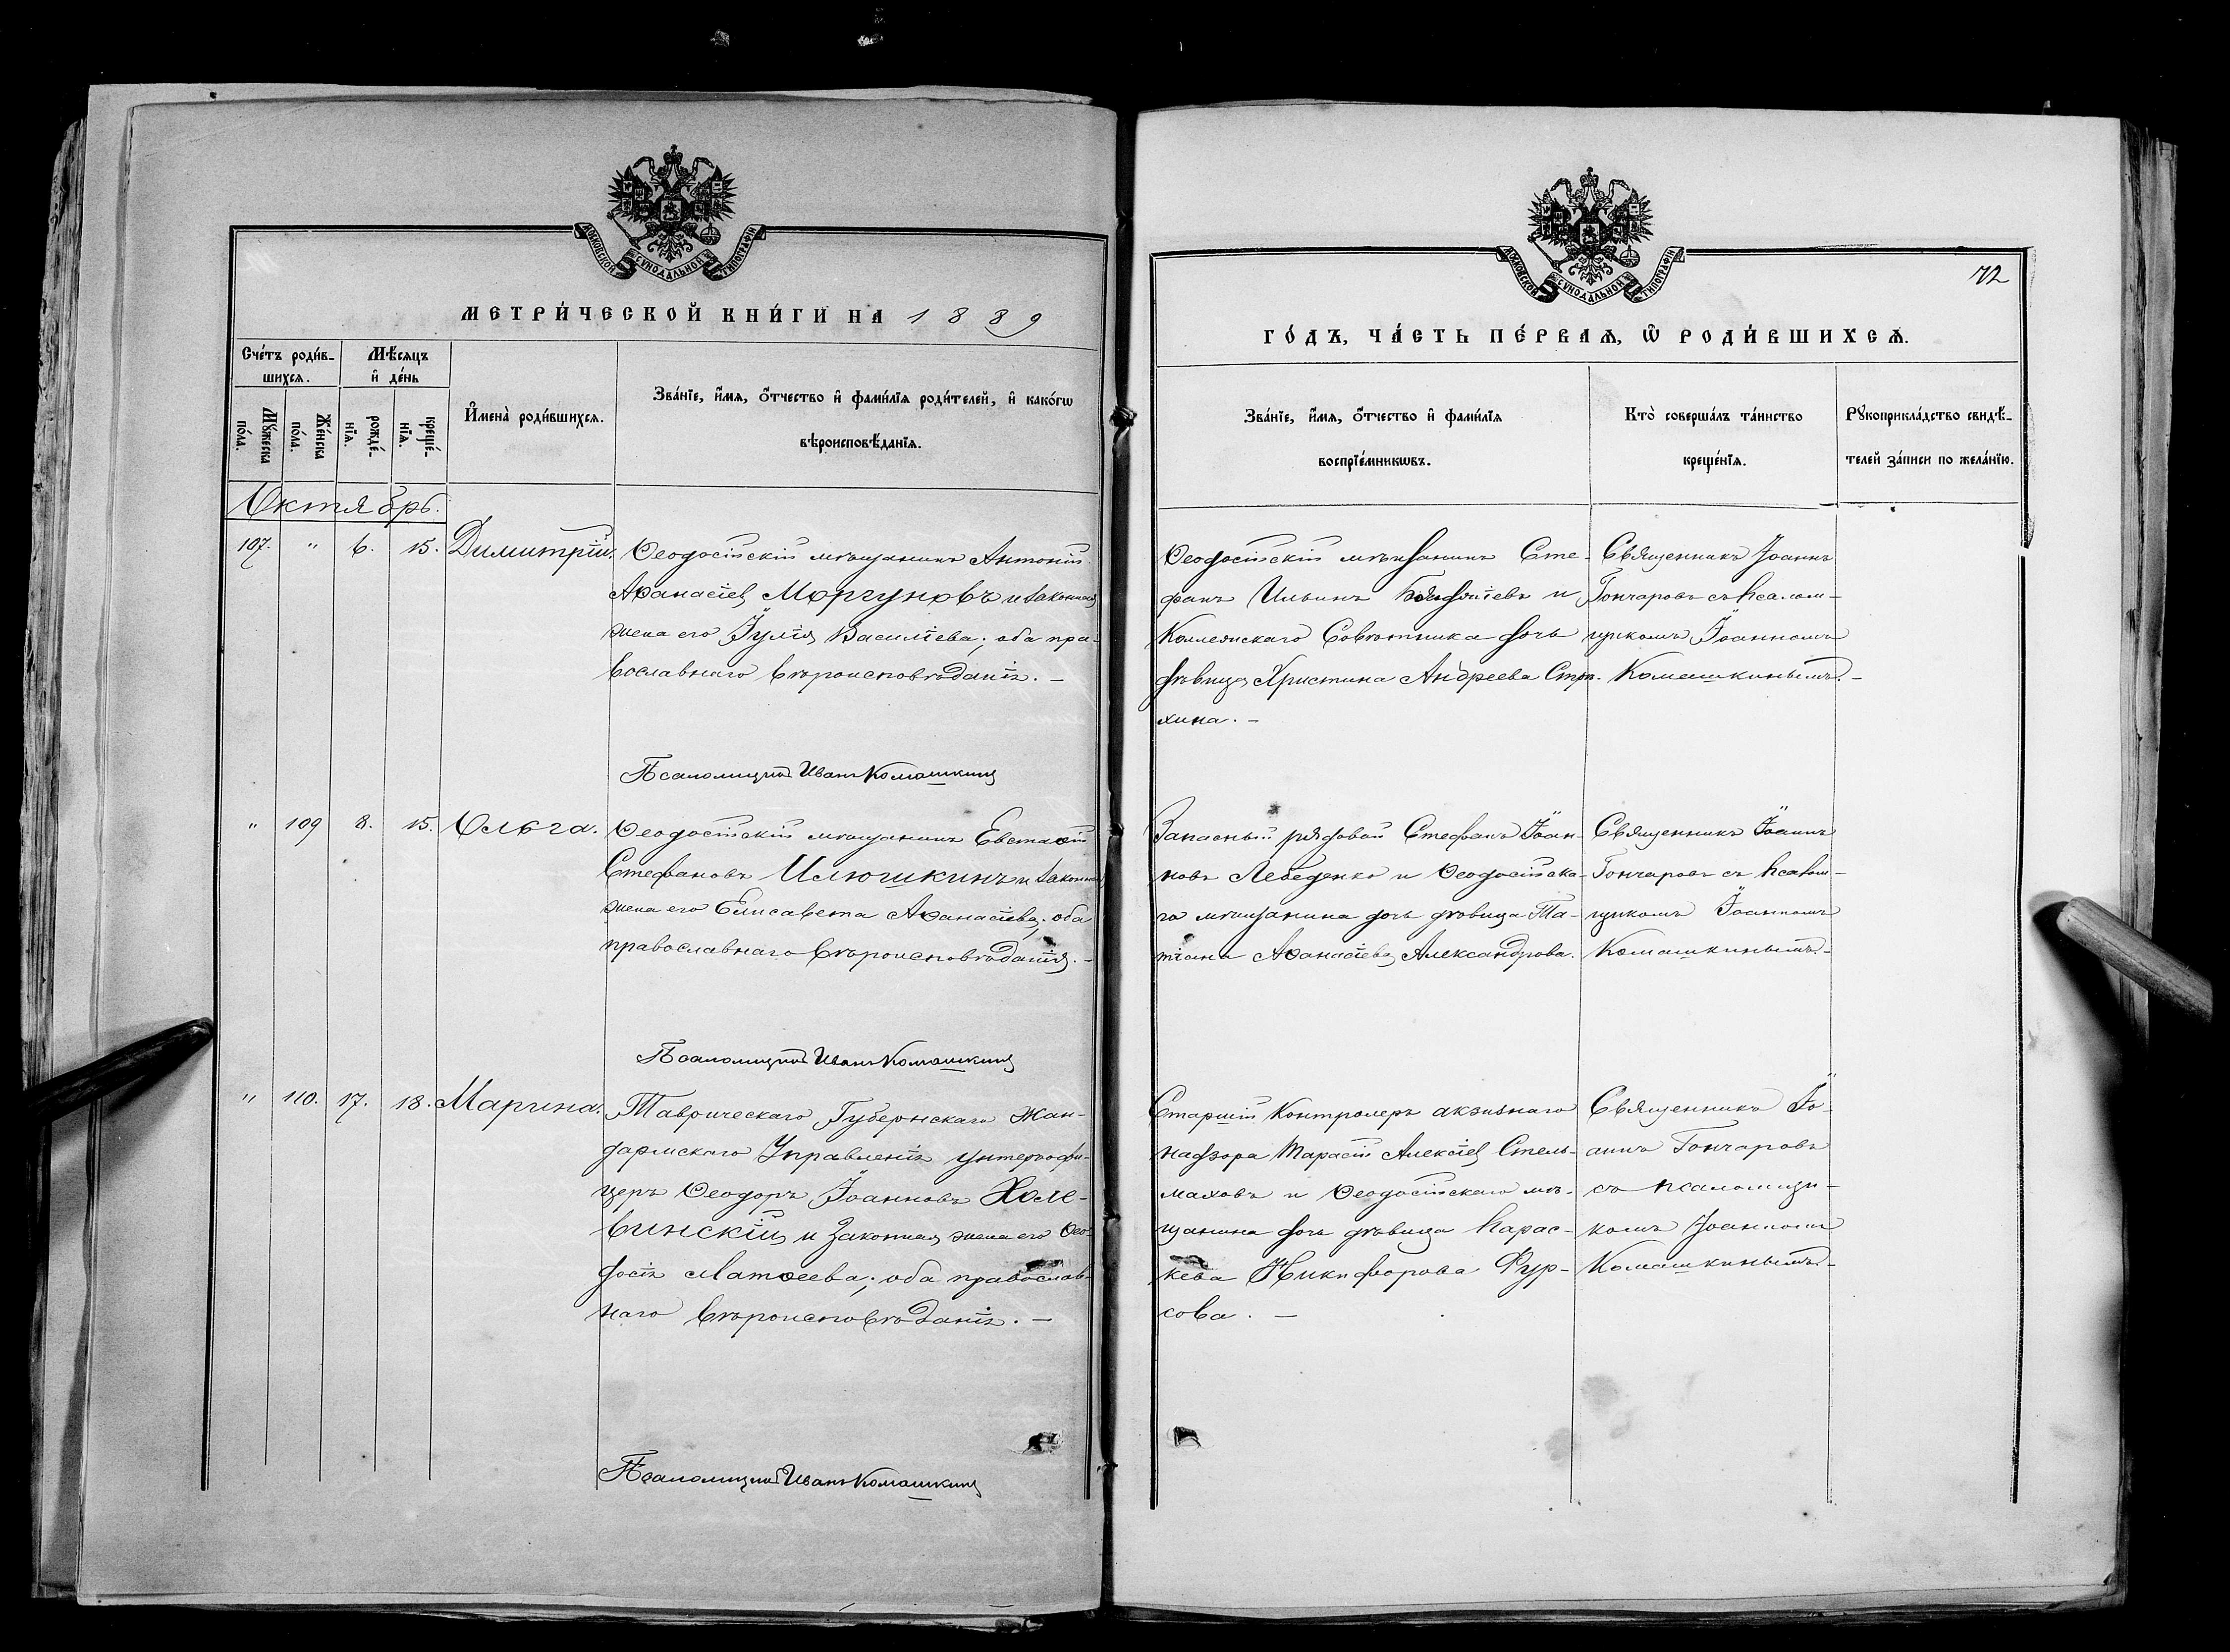 МОСКОВСКОЙ СѴНОДАЛЬНОЙ ТИПОГРАФІИ
МЕТРИ́ЧЕСКОЙ КНИ́ГИ НА 1889
Сче́тъ роди́в-
шихсѧ.
Мѣ́сѧцъ
и҆ де́нь
Мꙋ́жеска
по́ла.
Же́нска
по́ла.
рожде́-
нїѧ.
креще́-
нїѧ.
И҆мена̀ роди́вшихсѧ.
Зва́нїе, и҆́мѧ, ѻ҆́тчество и҆ фами́лїѧ роди́телей, и҆ како́гѡ
вѣроисповѣ́данїѧ.
Октябрь.
107. " 6. 15. Димитрій.
Ѳеодосійскій мѣщанинъ Антоній
Аѳанасіевъ Моргуновъ и законная
жена его Іулія Василіева; оба пра-
вославнаго вѣроисповѣданія. —
Псаломщикъ Иванъ Комашкинъ
" 109 8. 15. Ольга.
Ѳеодосійскій мѣщанинъ Евстаѳій
Стефановъ Илюшкинъ и законная
жена его Елисавета Аѳанасіева; оба
православнаго вѣроисповѣданія. -
Псаломщикъ Иванъ Комашкинъ
" 110. 17. 18. Марина.
Таврическаго Губернскаго Жан-
дармскаго Управленія унтеръ-офи-
церъ Ѳеодоръ Іоанновъ Холе-
винскій и законная жена его Ѳео-
досія Матѳеева; оба православ-
наго вѣроисповѣданія. —
Псаломщикъ Иванъ Комашкинъ
МОСКОВСКОЙ СѴНОДАЛЬНОЙ ТИПОГРАФІИ
72
ГО́ДЪ, ЧА́СТЬ ПЕ́РВАѦ, Ѽ РОДИ́ВШИХСѦ.
Зва́нїе, и҆́мѧ, ѻ҆́тчество и҆ фами́лїѧ
воспрїе́мникѡвъ.
Кто̀ соверша́лъ та́инство
креще́нїѧ.
Рꙋкоприкла́дство свидѣ́-
телей за́писи по жела́нїю.
Ѳеодосійскій мѣщанинъ Сте-
фанъ Ильинъ и
Коллежскаго Совѣтника дочь
дѣвица Христина Андреева Стри-
хина. —
Священникъ Іоаннъ
Гончаровъ съ псалом-
щикомъ Іоанномъ
Комашкинымъ. -
Запасный рядовой Стефанъ Іоан-
новъ Лебеденко и Ѳеодосійска-
го мѣщанина дочь дѣвица Та-
тіана Аѳанасіева Александрова.
Священникъ Іоаннъ
Гончаровъ съ псалом-
щикомъ Іоанномъ
Комашкинымъ. -
Старшій Контролеръ акзизнаго
надзора Тарасій Алексіевъ Стель-
маховъ и Ѳеодосійскаго мѣ-
щанина дочь дѣвица Парас-
кева Никифорова Фур-
сова. —
Священникъ Іо-
аннъ Гончаровъ
съ псаломщи-
комъ Іоанномъ
Комашкинымъ. -